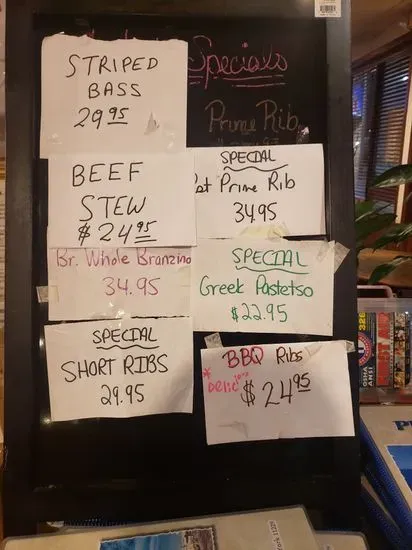 Specials
Prime Rib
STRIPED
BASS
29.95
BEEF
STEW
$24.95
SPECIAL
Prime Rib
34.95
Br. Whole Branzino
34.95
SPECIAL
Greek Pastetso
$22.95
SPECIAL
SHORT RIBS
29.95
BBQ Ribs
$24.95
FIRST AID
OSHA
ANSI